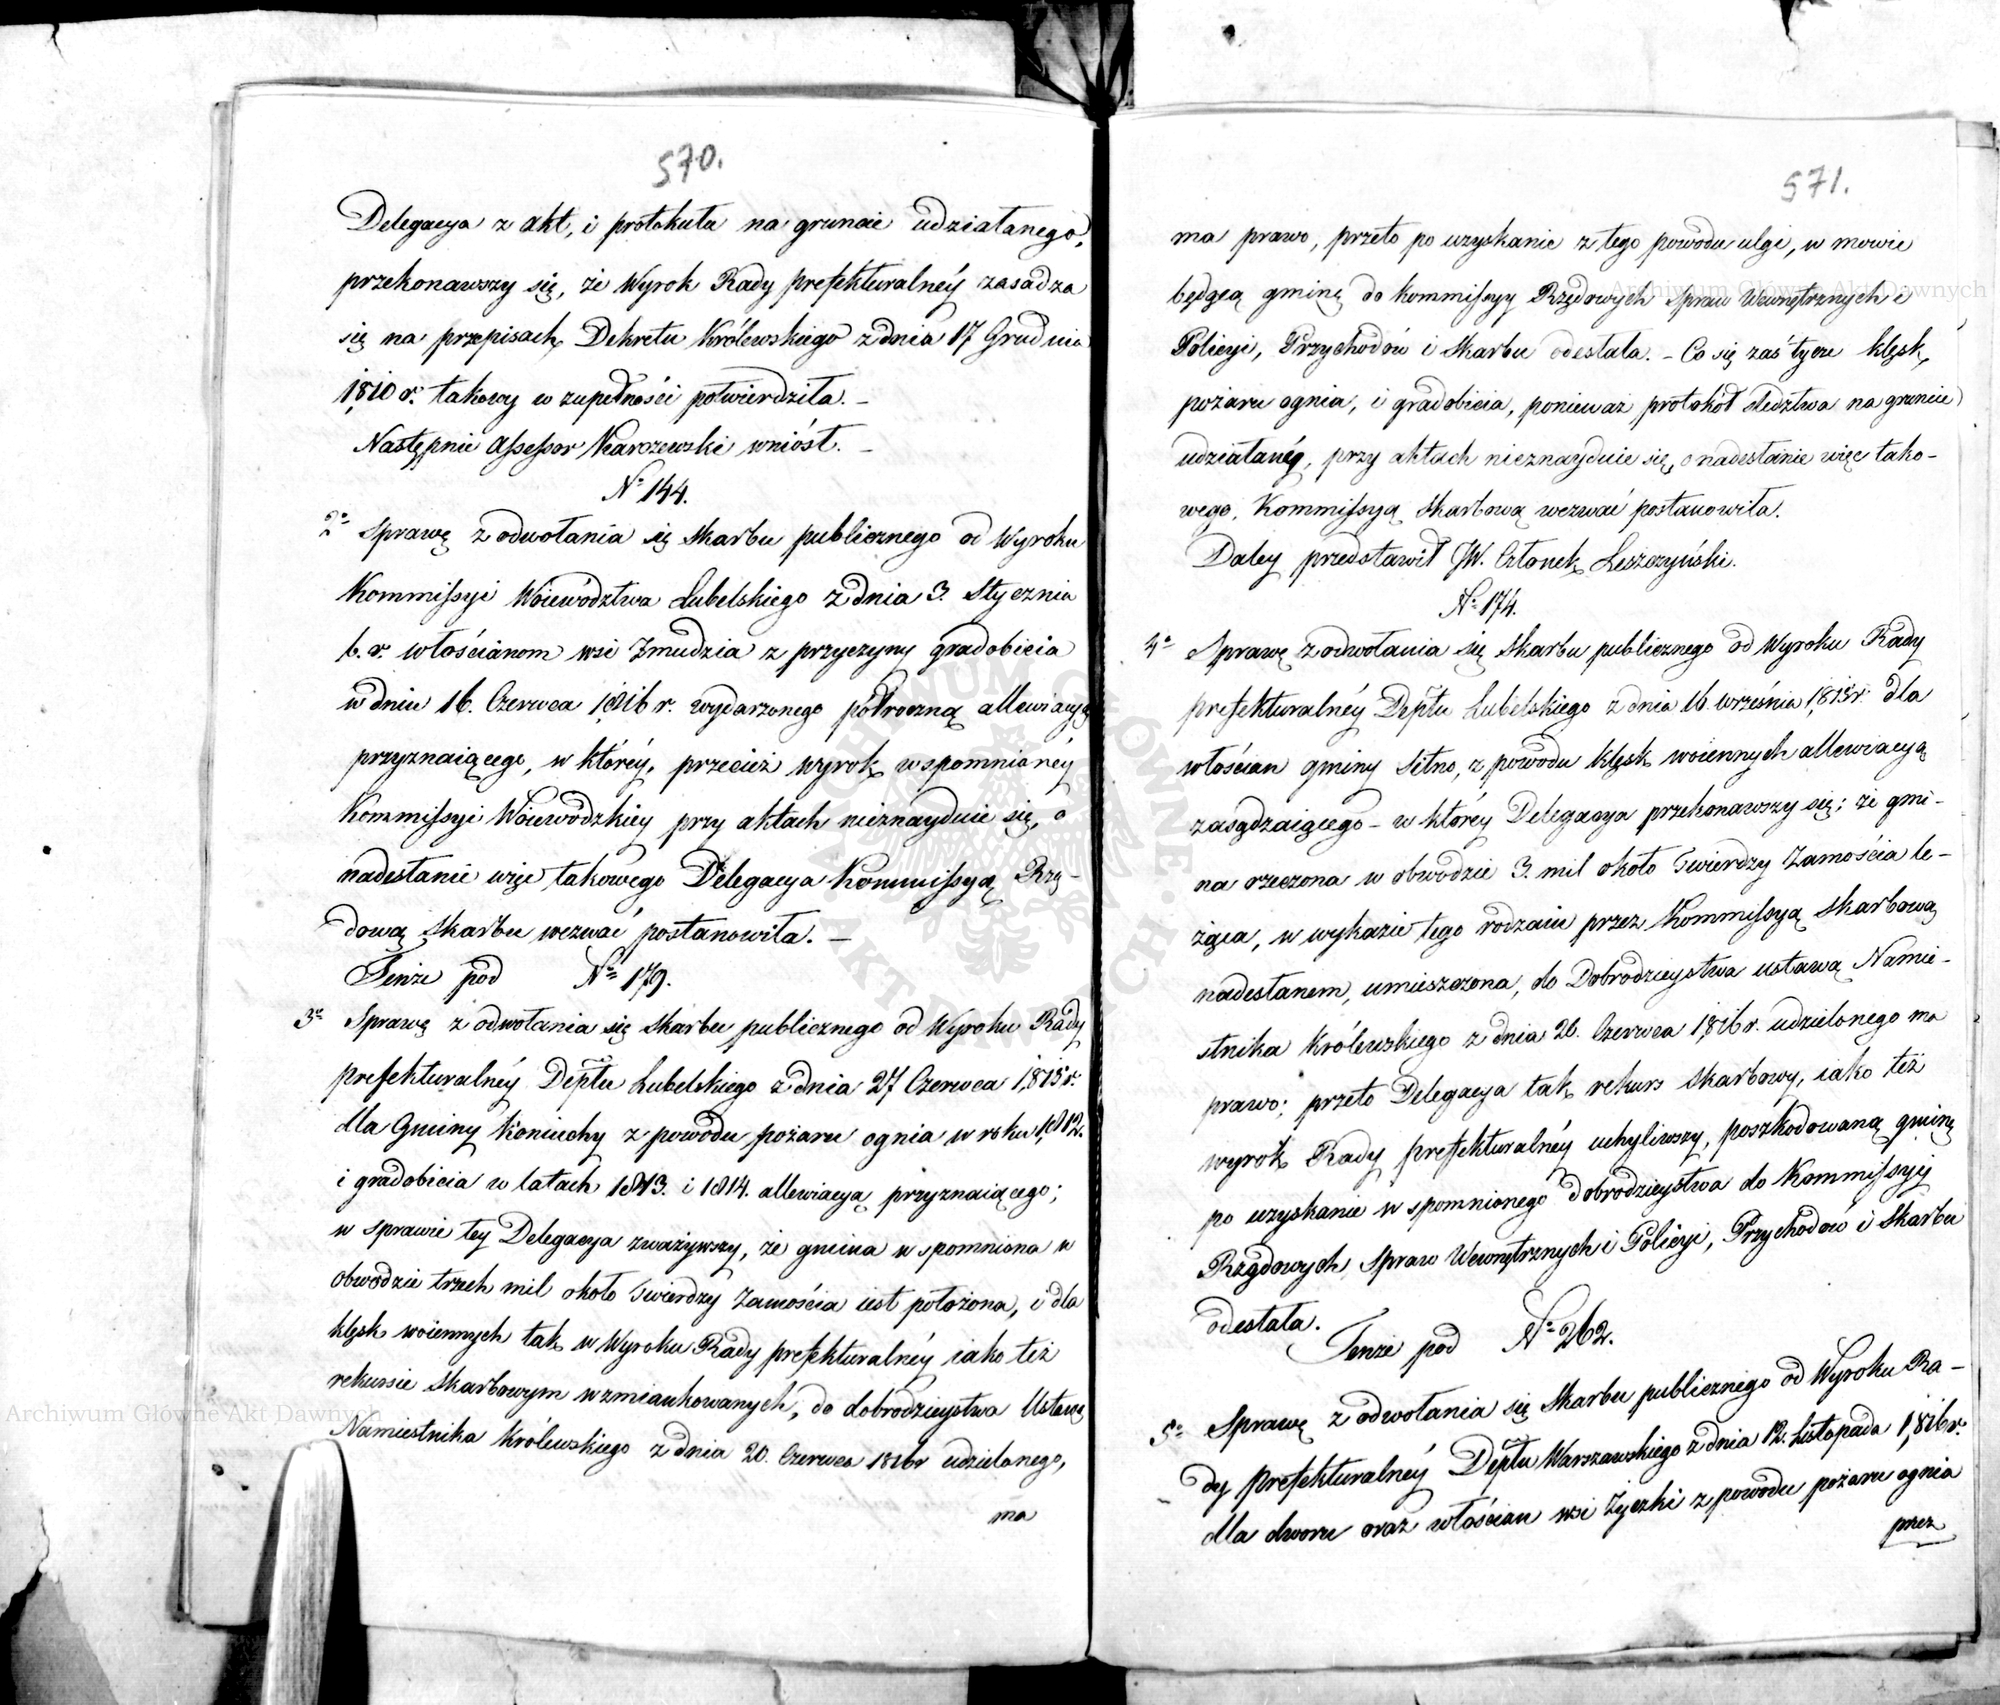 570.
Delegacya z akt, i protokułu na gruncie udziałanego,
przekonawszy się, że Wyrok Rady prefekturalnéy zasadza
się na przepisach Dekretu Królewskiego z dnia 17 Grudnia
1810 r. takowy w zupełności potwierdziła. –
Następnie Assessor Karczewski wniósł. –
N° 144.
2° Sprawę z odwołania się Skarbu publicznego od Wyroku
Kommissyi Woiewództwa Lubelskiego z dnia 3. Stycznia
b. r. włościanom wsi Zmudzia z przyczyny gradobicia
w dniu 16. Czerwca 1816 r. wydarzonego półroczną allewiacyą
przyznaiącego, w któréy, przecież wyrok wspomnionéy
Kommissyi Woiewódzkiey przy aktach nieznayduie się, o
nadesłanie więc takowego Delegacya Kommissyą Rzą-
dową Skarbu wezwać postanowiła. –
Tenże pod N° 179.
3° Sprawę z odwołania się Skarbu publicznego od Wyroku Rady
prefekturalnéy Deptu Lubelskiego z dnia 27 Czerwca 1815 r.
dla Gminy Koniuchy z powodu pożaru ognia w roku 1812.
i gradobicia w latach 1813. i 1814. allewiacyą przyznaiącego;
w sprawie tey Delegacya zważywszy, że gmina wspomniona w
obwodzie trzech mil około Twierdzy Zamościa iest położona, i dla
klęsk woiennych tak w Wyroku Rady prefekturalnéy iako też
rekursie Skarbowym wzmiankowanych, do dobrodzieystwa Ustawą
Namiestnika Królewskiego z dnia 20. Czerwca 1816 r udzielonego,
ma
571.
ma prawo, przeto po uzyskanie z tego powodu ulgi, w mowie
będącą gminę do Kommissyy Rządowych Spraw Wewnętrznych i
Policyi, Przychodów i Skarbu odesłała. – Co się zaś tycze klęsk,
pożaru ognia, i gradobicia, ponieważ protokół śledztwa na gruncie
udziałanéy, przy aktach nieznayduie się, o nadesłanie więc tako-
wego, Kommissyą Skarbową wezwać postanowiła.
Daley przedstawił JW. Członek Leszczyński.
N° 174.
4° Sprawę z odwołania się Skarbu publicznego od Wyroku Rady
prefekturalnéy Deptu Lubelskiego z dnia 16 września 1815 r. dla
włościan gminy Sitno, z powodu klęsk woiennych allewiacyą
zasądzaiącego – w któréy Delegacya przekonawszy się; że gmi-
na rzeczona w obwodzie 3. mil około Twierdzy Zamościa le-
żąca, w wykazie tego rodzaiu przez Kommissyą Skarbową
nadesłanem, umieszczona, do Dobrodzieystwa ustawą Namie-
stnika Królewskiego z dnia 20. Czerwca 1816 r. udzielonego ma
prawo; przeto Delegacya tak rekurs Skarbowy, iako też
wyrok Rady prefekturalnéy uchyliwszy, poszkodowaną gminę
po uzyskanie wspomnionego dobrodzieystwa do Kommissyy
Rządowych Spraw Wewnętrznych i Policyi, Przychodów i Skarbu
odesłała.
Tenże pod N° 262.
5° Sprawę z odwołania się Skarbu publicznego od Wyroku Ra-
dy prefekturalnéy Deptu Warszawskiego z dnia 12. Listopada 1816 r.
dla dworu oraz włościan wsi Życzki z powodu pożaru ognia
przez
Archiwum Główne Akt Dawnych
Archiwum Główne Akt Dawnych
ARCHIWUM GŁÓWNE · AKT DAWNYCH ·